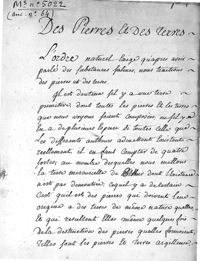 Mˢ nº 5022
(anc. nº 64)
Des Pierres et des terres
L'ordre naturel exige qu'apres avoir
parlé des substances salines, nous traitions
des pierres et des terres.
Il est douteux s'il y a une terre
primitive dont toutes les pierres et les terres
que nous voyons soient composées, ou s'il y
en a de plusieurs especes de toutes celles que
les differents auteurs admettent
et en font compter de quatre
sortes au nombre desquelles nous mettons
la terre mercurielle de dont l'existence
n'est pas demontrée
C'est qu'il est des pierres que doivent leur
origine a des terres de même nature quelles
et que resultent elles même quelques fois
de la destruction des pierres quelles forment.
Telles sont les pierres et terres argilleuses